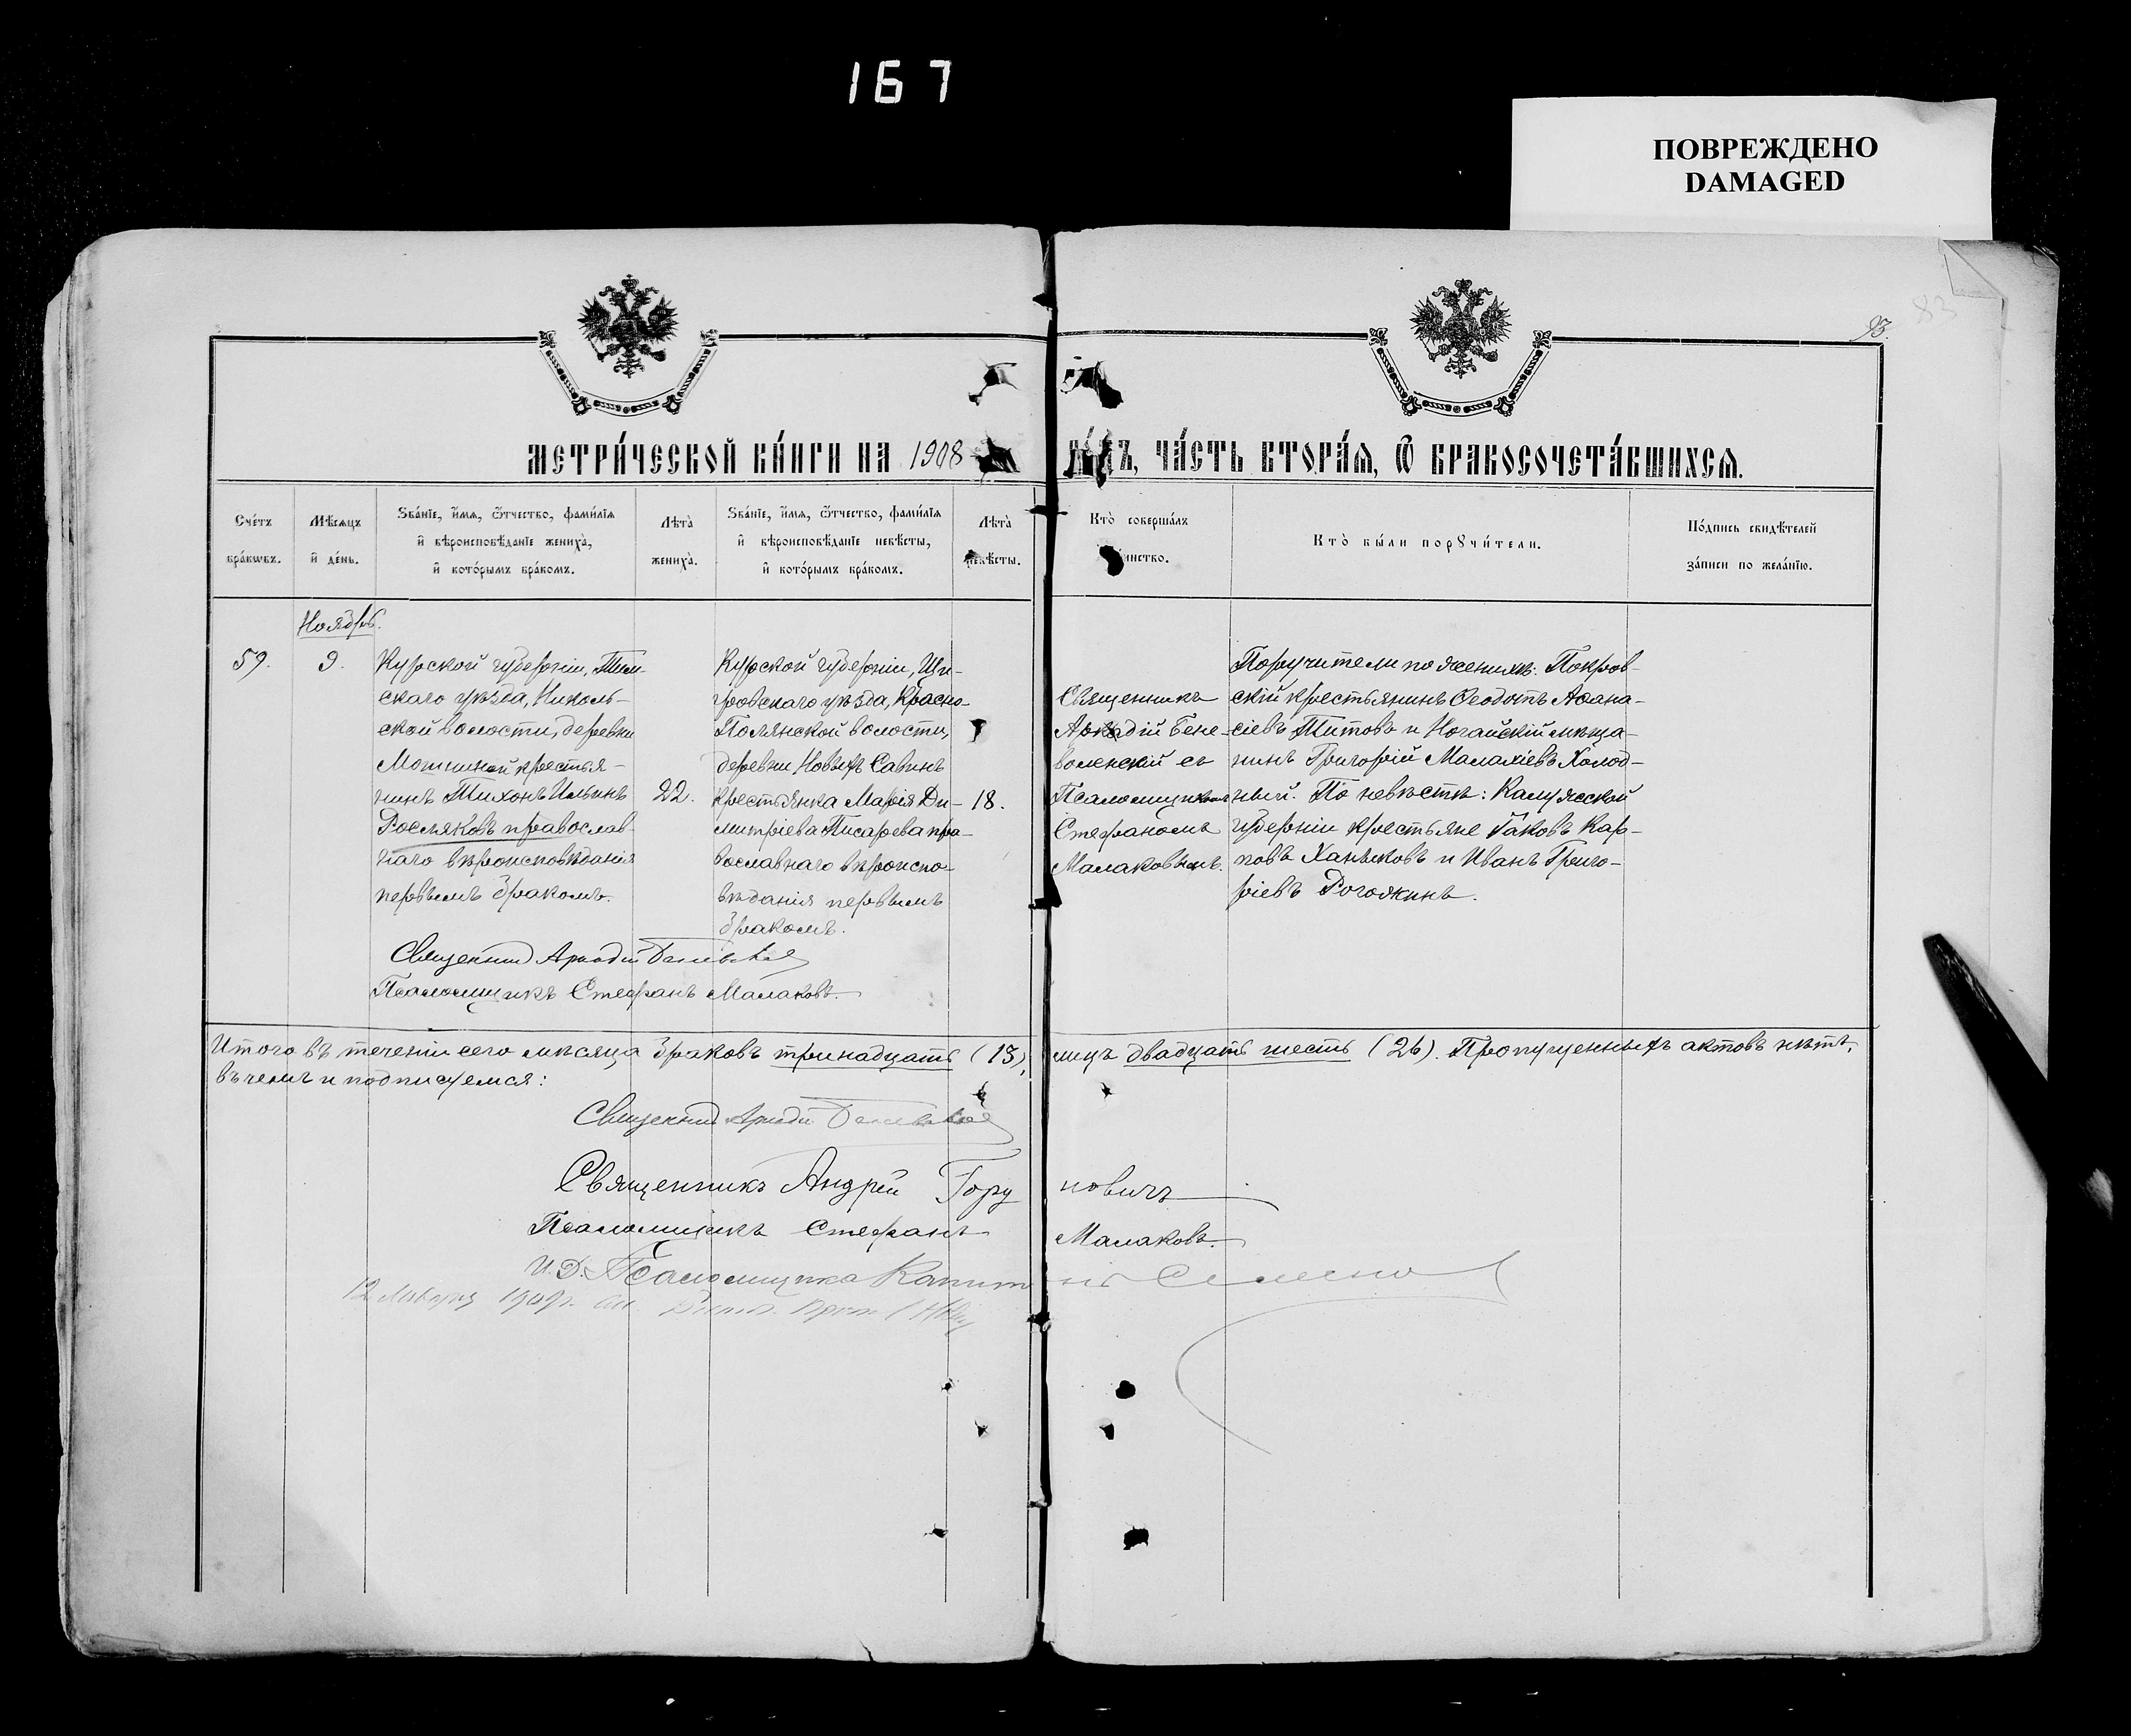 167
ПОВРЕЖДЕНО
DAMAGED
93.
83
МЕТРИ́ЧЕСКОЙ КНИ́ГИ НА 1908
ГО́ДЪ, ЧА́СТЬ ВТОРА́Я, Ѿ БРАКОСОЧЕТА́ВШИХСЯ.
Сче́тъ бра́кѡвъ.
Мѣ́сяцъ и҆ де́нь.
Ѕва́нїе, и҆́мя, ѻ҆́тчество, фами́лїя и҆ вѣроисповѣ́данїе жениха̀, и҆ кото́рымъ бра́комъ.
Лѣта̀ жениха̀.
Ѕва́нїе, и҆́мя, ѻ҆́тчество, фами́лїя и҆ вѣроисповѣ́данїе невѣ́сты, и҆ кото́рымъ бра́комъ.
Лѣта̀ невѣ́сты.
Кто̀ соверша́лъ
инство.
Кто̀ бы́ли порꙋчи́тели.
По́дпись свидѣ́телей за́писи по жела́нїю.
Ноябрь.
59.
9.
Курской губерніи, Тим-
скаго уѣзда, Николь-
ской волости, деревни
крестья-
нинъ Тихонъ Ильинъ
Росляковъ православ-
наго вѣроисповѣданія
первымъ бракомъ.
22.
Курской губерніи, Щи-
гровскаго уѣзда, Красно-
Полянской волости,
деревни Новыхъ Савинъ
крестьянка Марія Ди-
митріева Писарева пра-
вославнаго вѣроиспо-
вѣданія первымъ
бракомъ.
18.
Священникъ
Аркадій Бене-
воленскій съ
Псаломщикомъ
Стефаномъ
Малаковымъ.
Поручители по женихѣ: Покров-
скій крестьянинъ Ѳеодотъ Аѳана-
сіевъ Титовъ и Ногайскій мѣща-
нинъ Григорій Малахіевъ Холод-
ный. По невѣстѣ: Калужской
губерніи крестьяне Іаковъ Кар-
повъ Ханыковъ и Иванъ Григо-
ріевъ Рогожинъ.
Священникъ Аркадій
Псаломщикъ Стефанъ Малаковъ.
Итого въ теченіи сего мѣсяца браковъ тринадцать (13), лицъ двадцать шесть (26). Пропущенныхъ актовъ нѣтъ,
въ чемъ и подписуемся:
Священникъ Аркадій
Священникъ Андрей Горуновичъ
Псаломщикъ Стефанъ Малаковъ.
И. Д. Псаломщика Капитонъ
12 1909 г.